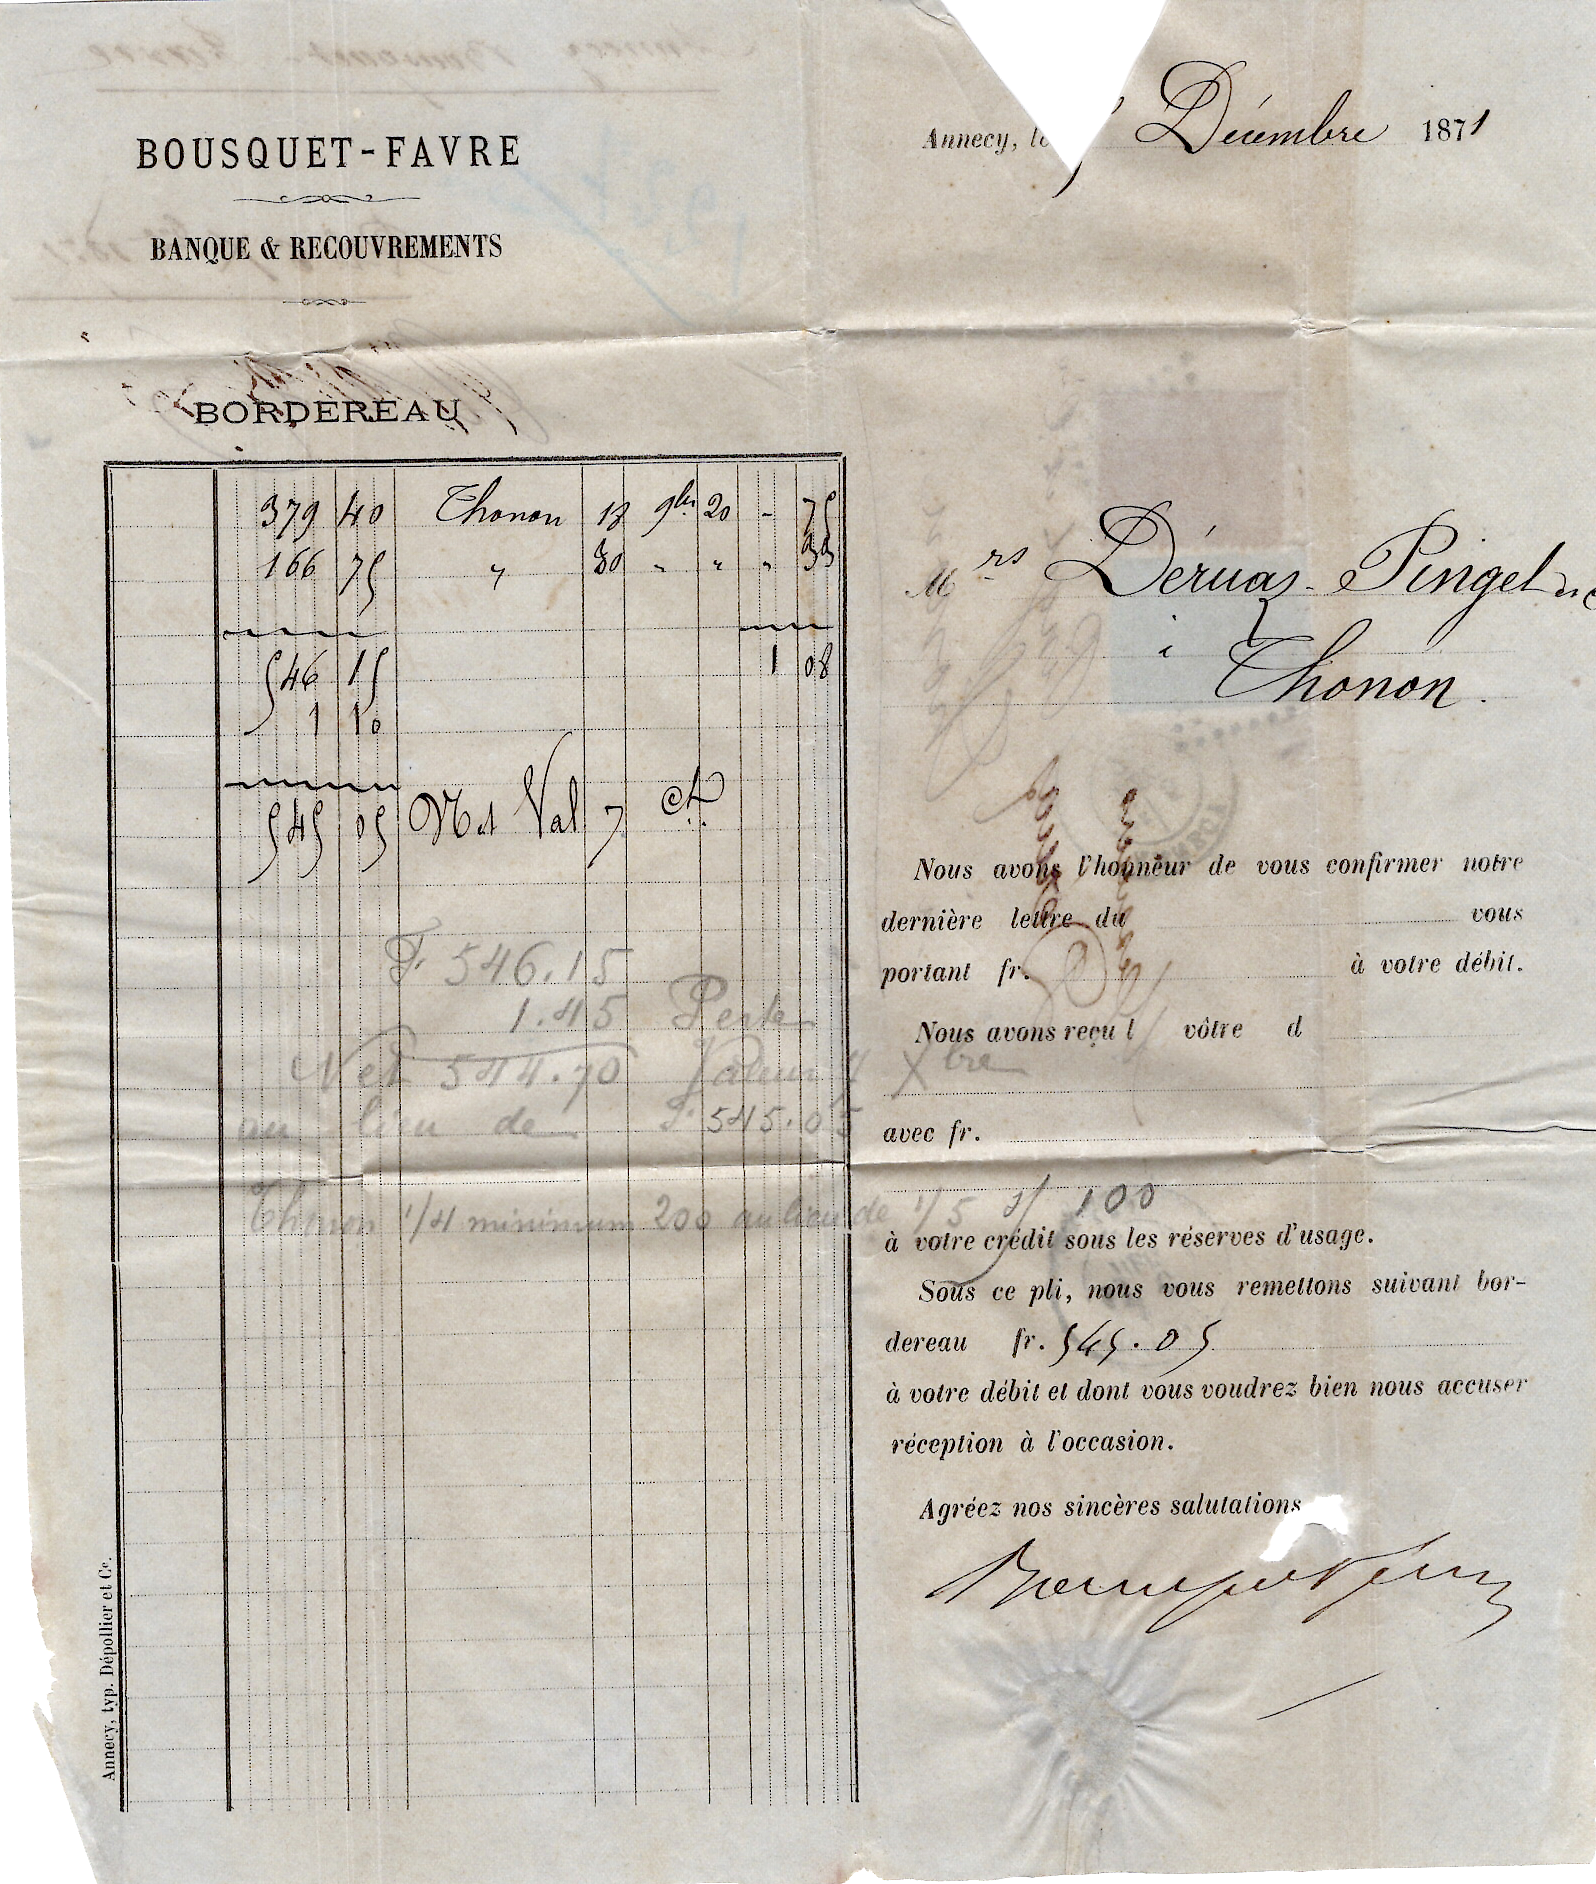 BOUSQUET-FAVRE
BANQUE & RECOUVREMENTS
Annecy, le Décembre 1871
BORDEREAU
379 40 Thonon 18 9bre 20 - 75
166 75 " 30 " " " 33
546 15 1 08
1 10
545 05 Net Val 7 ct
F. 546.15
1.45 Perte
Net 544.70 Valeur 7 Xbre
au lieu de F. 545.05
Thonon 1/4 minimum 200 au lieu de 1/5 s/ 100
Annecy, typ. Dépollier et Ce.
Mrs Déruaz-Pinget
à
Thonon.
Nous avons l'honneur de vous confirmer notre
dernière lettre du vous
portant fr. à votre débit.
Nous avons reçu l vôtre d
avec fr.
à votre crédit sous les réserves d'usage.
Sous ce pli, nous vous remettons suivant bor-
dereau fr. 545.05
à votre débit et dont vous voudrez bien nous accuser
réception à l'occasion.
Agréez nos sincères salutations